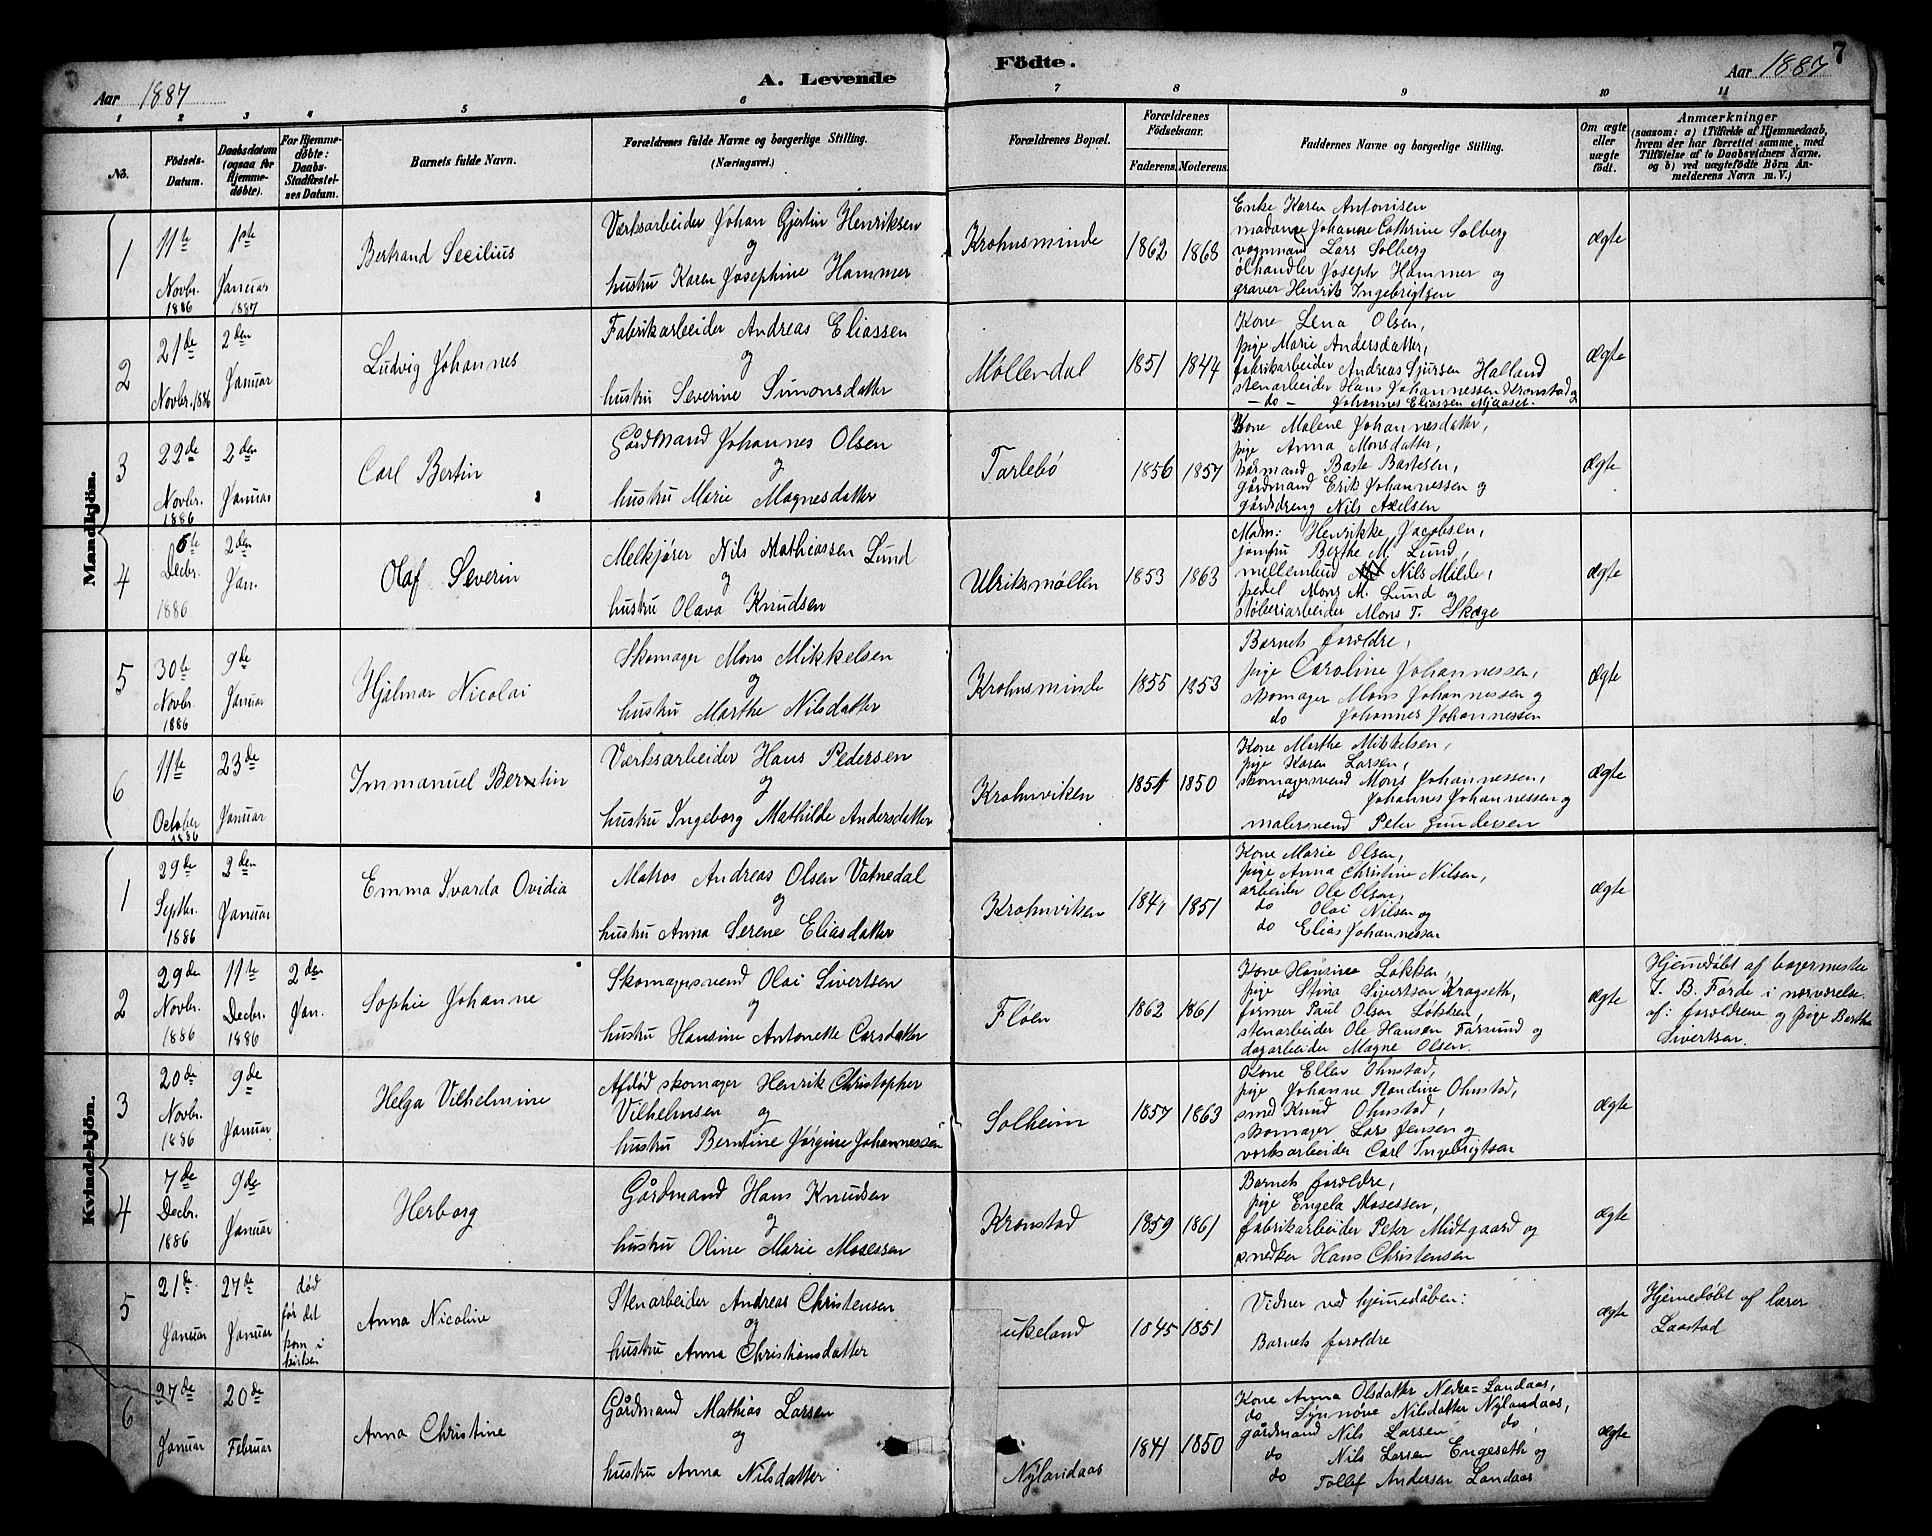 Aar 1887
A. Levende
Födte.
Aar 1887
7
1 2 3 4 5 6 7 8 9 10 11
No.
Födsels-Datum.
Daabsdatum (ogsaa for Hjemmedøbte).
For Hjemmedøbte: Daabs-Stadfæstelses Datum.
Barnets fulde Navn.
Forældrenes fulde Navne og borgerlige Stilling. (Næringsvei.)
Forældrenes Bopæl.
Forældrenes Födselsaar.
Faderens. Moderens.
Faddernes Navne og borgerlige Stilling.
Om ægte eller uægte født.
Anmærkninger (saasom: a) i Tilfælde af Hjemmedaab, hvem der har forrettet samme, med Tilføielse af to Daabsvidners Navne, og b) ved uægtefödte Börn Anmelderens Navn m. V.)
Mandkjön.
1
11te Novbr. 1886
1ste Januar 1887
Bertrand Secilius
Værksarbeider Johan Gjertin Henriksen
og
hustru Karen Josephine Hammer
Krohnsminde
1862 1863
Enke Karen Antonisen
madame Johanne Cathrine Solberg
vognmand Lars Solberg
ølhandler Joseph Hammer og
graver Henrik Ingebrigtsen
ægte
2
21de Novbr. 1886
2den Januar
Ludvig Johannes
Fabrikarbeider Andreas Eliassen
og
hustru Severine Simonsdatter
Møllendal
1851 1844
Kone Lena Olsen,
pige Marie Andersdatter,
fabrikarbeider Andreas Sjursen Halland
stenarbeider Hans Johannessen Kronstad og
- do - Johannes Eliassen Mjaaset.
ægte
3
22de Novbr. 1886
2den Januar
Carl Bertin
Gårdmand Johannes Olsen
og
hustru Marie Magnesdatter
Tarlebø
1856 1857
Kone Malene Johannesdatter,
pige Anna Monsdatter,
Baste Bastesen,
gårdmand Erik Johannessen og
gårdsdreng Nils Axelsen
ægte
4
6te Decbr. 1886
2den Jan.
Olaf Severin
Melkjører Nils Mathiassen Lund
og
hustru Olava Knudsen
Ulriksmøllen
1853 1863
Madm: Henrikke Jacobsen,
jomfru Berthe M. Lund,
mellembud Nils Milde,
pedel Mons M. Lund og
støberiarbeider Mons T. Skage
ægte
5
30te Novbr. 1886
9de Januar
Hjalmar Nicolai
Skomager Mons Mikkelsen
og
hustru Marthe Nilsdatter
Krohnsminde
1855 1853
Barnets forældre,
pige Caroline Johannessen,
skomager Mons Johannessen og
do Johannes Johannessen
ægte
6
11te October 1886
23de Januar
Immanuel Berntin
Værksarbeider Hans Pedersen
og
hustru Ingeborg Mathilde Andersdatter
Krohnviken
1851 1850
Kone Marthe Mikkelsen,
pige Karen Larsen,
skomagersvend Mons Johannessen,
do Johannes Johannessen og
malersvend Peter Gundersen
ægte
Kvindekjön.
1
29de Septbr. 1886
2den Januar
Emma Svarda Ovidia
Matros Andreas Olsen Vatnedal
og
hustru Anna Serene Eliasdatter
Krohnviken
1847 1851
Kone Marie Olsen,
pige Anna Christine Nilsen,
arbeider Ole Olsen,
do Olai Nilsen og
do Elias Johannessen
ægte
2
29de Novbr. 1886
11te Decbr. 1886
2den Jan.
Sophie Johanne
Skomagersvend Olai Sivertsen
og
hustru Hansine Antonette Carsdatter
Fløen
1862 1861
Kone Hansine Løkken,
pige Stina Sivertsen Kragseth,
former Paul Olsen Løkken,
stenarbeider Ole Hansen Farsund og
dagarbeider Magne Olsen.
ægte
Hjemedøbt af bagermester
T. B. Førde i nærværelse
af: forældrene og pige Berthe
Sivertsen.
3
20de Novbr. 1886
9de Januar
Helga Vilhelmine
Afdød skomager Henrik Christopher
Vilhelmsen og
hustru Berntine Jørgine Johannessen
Solheim
1857 1863
Kone Ellen Ohnstad,
pige Johanne Randine Ohnstad,
smed Knud Ohnstad,
skomager Lars Jensen og
værksarbeider Carl Ingebrigtsen
ægte
4
7de Decbr. 1886
9de Januar
Herborg
Gårdmand Hans Knudsen
og
hustru Oline Marie Mosessen
Kronstad
1859 1861
Barnets forældre,
pige Engela Mosessen,
fabrikarbeider Peter Midtgaard og
snedker Hans Christensen
ægte
5
21de Januar
27de Januar
død før det kom i kirken
Anna Nicoline
Stenarbeider Andreas Christensen
og
hustru Anna Christiansdatter
ukeland
1845 1851
Vidner ved hjemedåben:
Barnets forældre
ægte
Hjemedøbt af lærer
Laastad
6
27de Januar
20de Februar
Anna Christine
Gårdmand Mathias Larsen
og
hustru Anna Nilsdatter
Nylandaas
1841 1850
Kone Anna Olsdatter Nedre=Landaas,
do Synnøve Nilsdatter Nylandaas,
gårdmand Nils Larsen do
do Nils Larsen Engeseth og
do Tollef Andersen Landaas
ægte